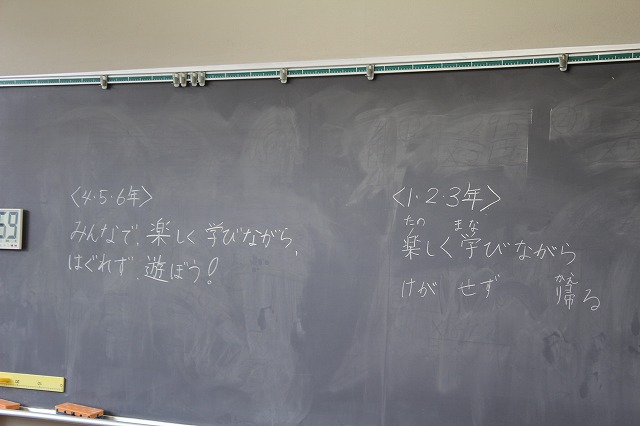 〈4・5・6年〉
みんなで、楽しく学びながら、
はぐれず、遊ぼう!
〈1・2・3年〉
たの まな
楽しく学びながら
けが せず
かえ
帰る
59